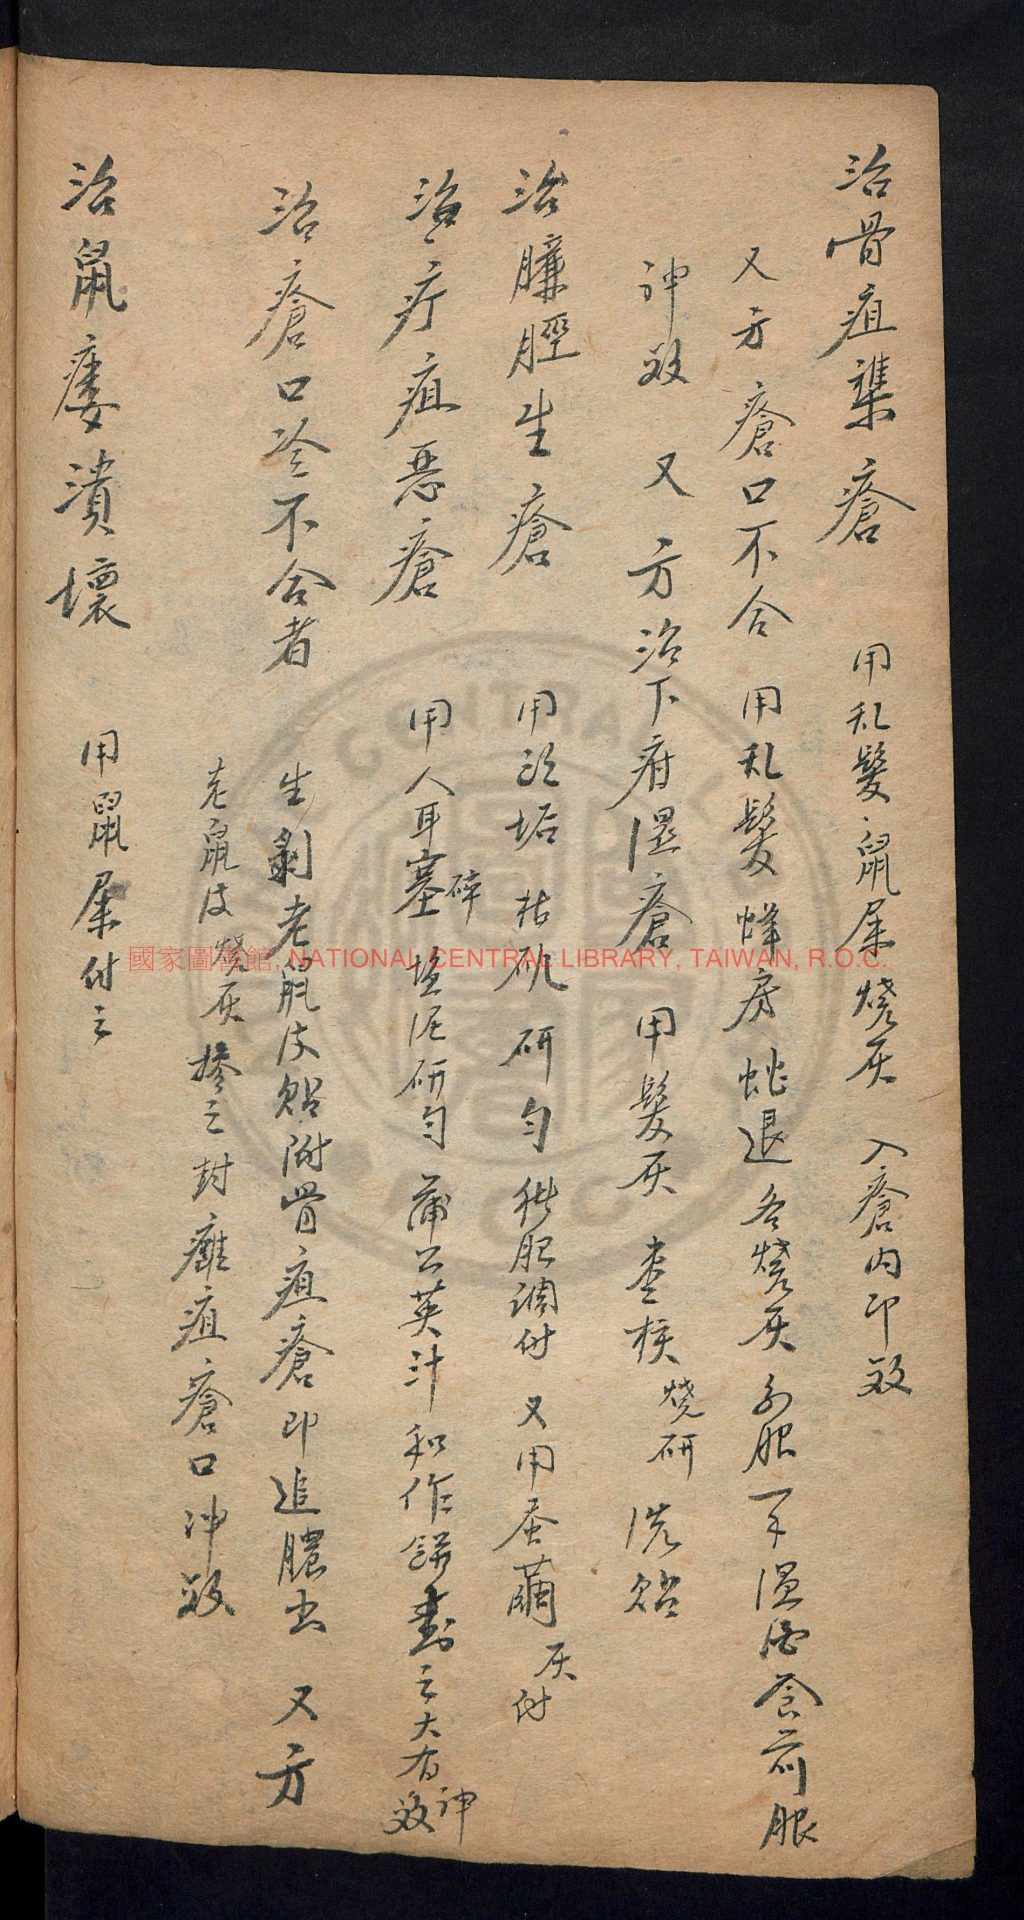 治骨疽集瘡　用乱髮鼠屎燒灰　入瘡内即效
又方　瘡口不合　用乱髮蜂房蛇退各燒灰　服一下温酒食前服
神效　又方治下府濕瘡　用髮灰　枣核燒研　洗貼
治臁脛生瘡　用頭垢　枯矾　研勻　猪胆調付　又用蚕繭灰付
治疔疽惡瘡　用人耳塞碎　塩泥研勻　蒲公英汁和作餅封之大有神效
治瘡口冷不合者　生剥老鼠皮貼附骨疽瘡即追膿出　又方
老鼠皮燒灰　摻之封癰疽瘡口神效
治鼠瘻潰壞　用鼠屎付之
國家圖書館, NATIONAL CENTRAL LIBRARY, TAIWAN, R.O.C.